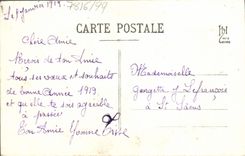 Le 8 Janvier 1919
7816/99
CARTE POSTALE
Chère Amie
Merci de ton Amie
tous ses vœux et souhaits
de bonne Année 1919
et qu'elle te soit agréable
à passer
Ton Amie Yvonne
Mademoiselle
Georgette Lefrançois
à St